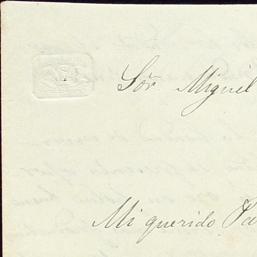 Sör Miguel
Mi querido